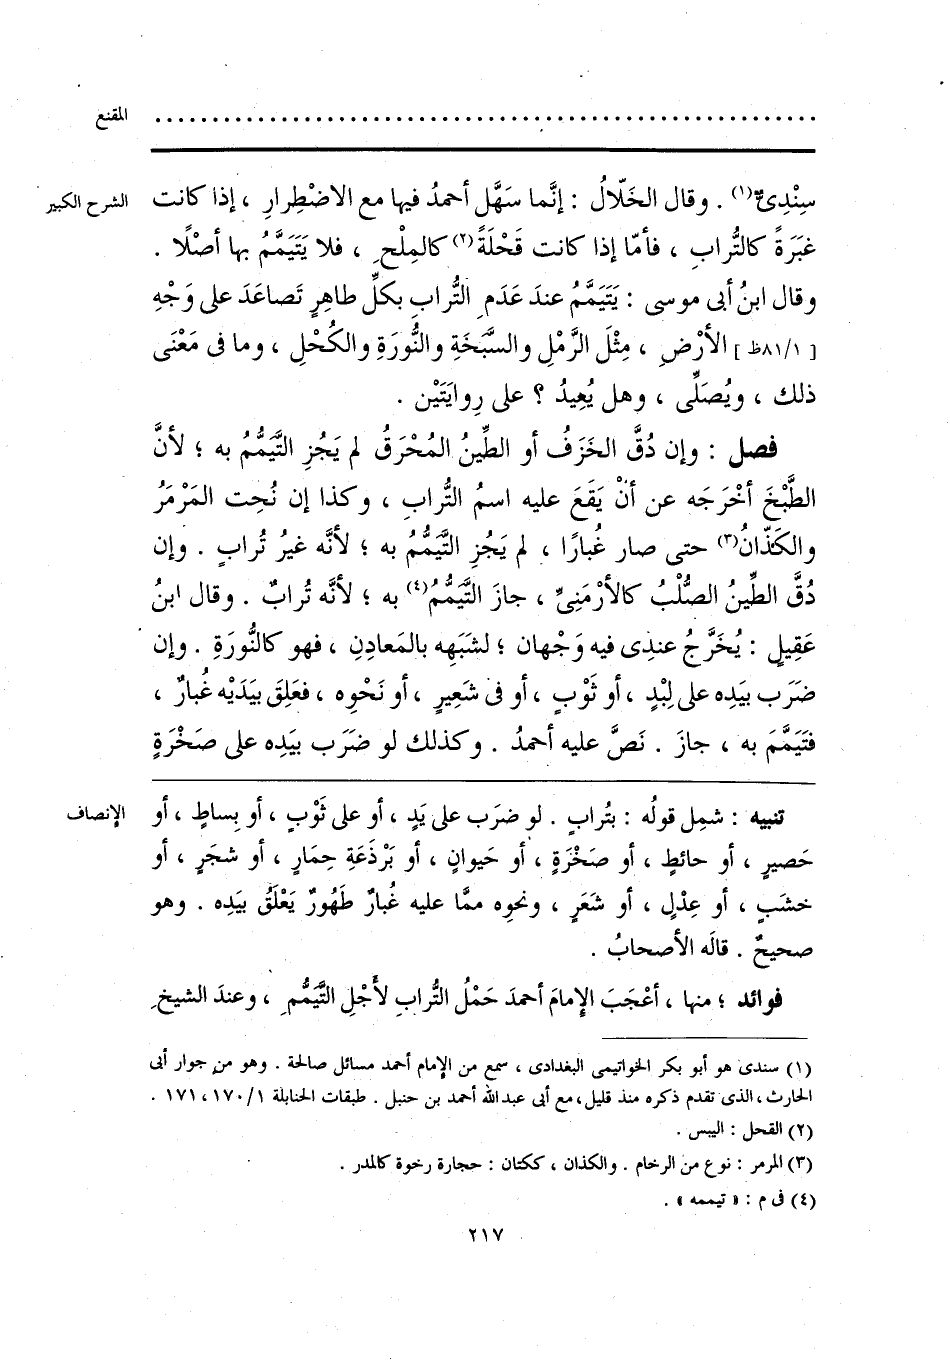 المقنع ............................................................
الشرح الكبير
سِنْدِىٌّ(١) . وقال الخَلّالُ : إنَّما سَهَّل أحمدُ فيها مع الاضْطِرارِ ، إذا كانت
غبَرَةً كالتُّرابِ ، فأمّا إذا كانت قَحْلَةً(٢) كالمِلْحِ ، فلا يَتَيَمَّمُ بها أصْلًا .
وقال ابنُ أبى موسى : يَتَيَمَّمُ عندَ عَدَمِ التُّرابِ بكلِّ طاهِرٍ تَصاعَدَ على وَجْهِ
[ ٨١/١ظ ] الأرْضِ ، مِثْلَ الرَّمْلِ والسَّبَخَةِ والنُّورَةِ والكُحْلِ ، وما فى مَعْنَى
ذلك ، ويُصَلِّى ، وهل يُعِيدُ ؟ على رِوايَتَيْن .
فصل : وإن دُقَّ الخَزَفُ أو الطِّينُ المُحْرَقُ لم يَجُزِ التَّيَمُّمُ به ؛ لأنَّ
الطَّبْخَ أخْرَجَه عن أنْ يَقَعَ عليه اسمُ التُّرابِ ، وكذا إن نُحِت المَرْمَرُ
والكَذّانُ(٣) حتى صار غُبارًا ، لم يَجُزِ التَّيَمُّمُ به ؛ لأنَّه غيرُ تُرابٍ . وإن
دُقَّ الطِّينُ الصُّلْبُ كالأرْمَنِىِّ ، جازَ التَّيَمُّمُ(٤) به ؛ لأنَّه تُرابٌ . وقال ابنُ
عَقِيلٍ : يُخَرَّجُ عندِى فيه وَجْهان ؛ لشَبَهِه بالمَعادِنِ ، فهو كالنُّورَةِ . وإن
ضَرَب بيَدِه على لِبْدٍ ، أو ثَوْبٍ ، أو فى شَعِيرٍ ، أو نَحْوِه ، فعَلِق بيَدَيْه غُبارٌ ،
فتَيَمَّمَ به ، جازَ . نَصَّ عليه أحمدُ . وكذلك لو ضرَب بيَدِه على صَخْرَةٍ
الإنصاف
تنبيه : شمِل قولُه : بتُرابٍ . لو ضرَب على يَدٍ ، أو على ثَوْبٍ ، أو بِساطٍ ، أو
حَصيرٍ ، أو حائطٍ ، أو صَخْرَةٍ ، أو حَيوانٍ ، أو بَرْذَعَةِ حِمَارٍ ، أو شجَرٍ ، أو
خشَبٍ ، أو عِدْلٍ ، أو شَعَرٍ ، ونحوِه ممَّا عليه غُبارٌ طَهُورٌ يَعْلَقُ بيَدِه . وهو
صحيحٌ . قالَه الأصحابُ .
فوائد ؛ منها ، أعْجَبَ الإمامَ أحمدَ حَمْلُ التُّرابِ لأَجْلِ التَّيَمُّمِ ، وعندَ الشيخِ
(١) سندى هو أبو بكر الخواتيمى البغدادى ، سمع من الإمام أحمد مسائل صالحة . وهو من جوار أبى
الحارث ، الذى تقدم ذكره منذ قليل ، مع أبى عبد الله أحمد بن حنبل . طبقات الحنابلة ١/ ١٧٠ ، ١٧١ .
(٢) القحل : اليبس .
(٣) المرمر : نوع من الرخام . والكذان ، ككتان : حجارة رخوة كالمدر .
(٤) فى م : « تيممه » .
٢١٧